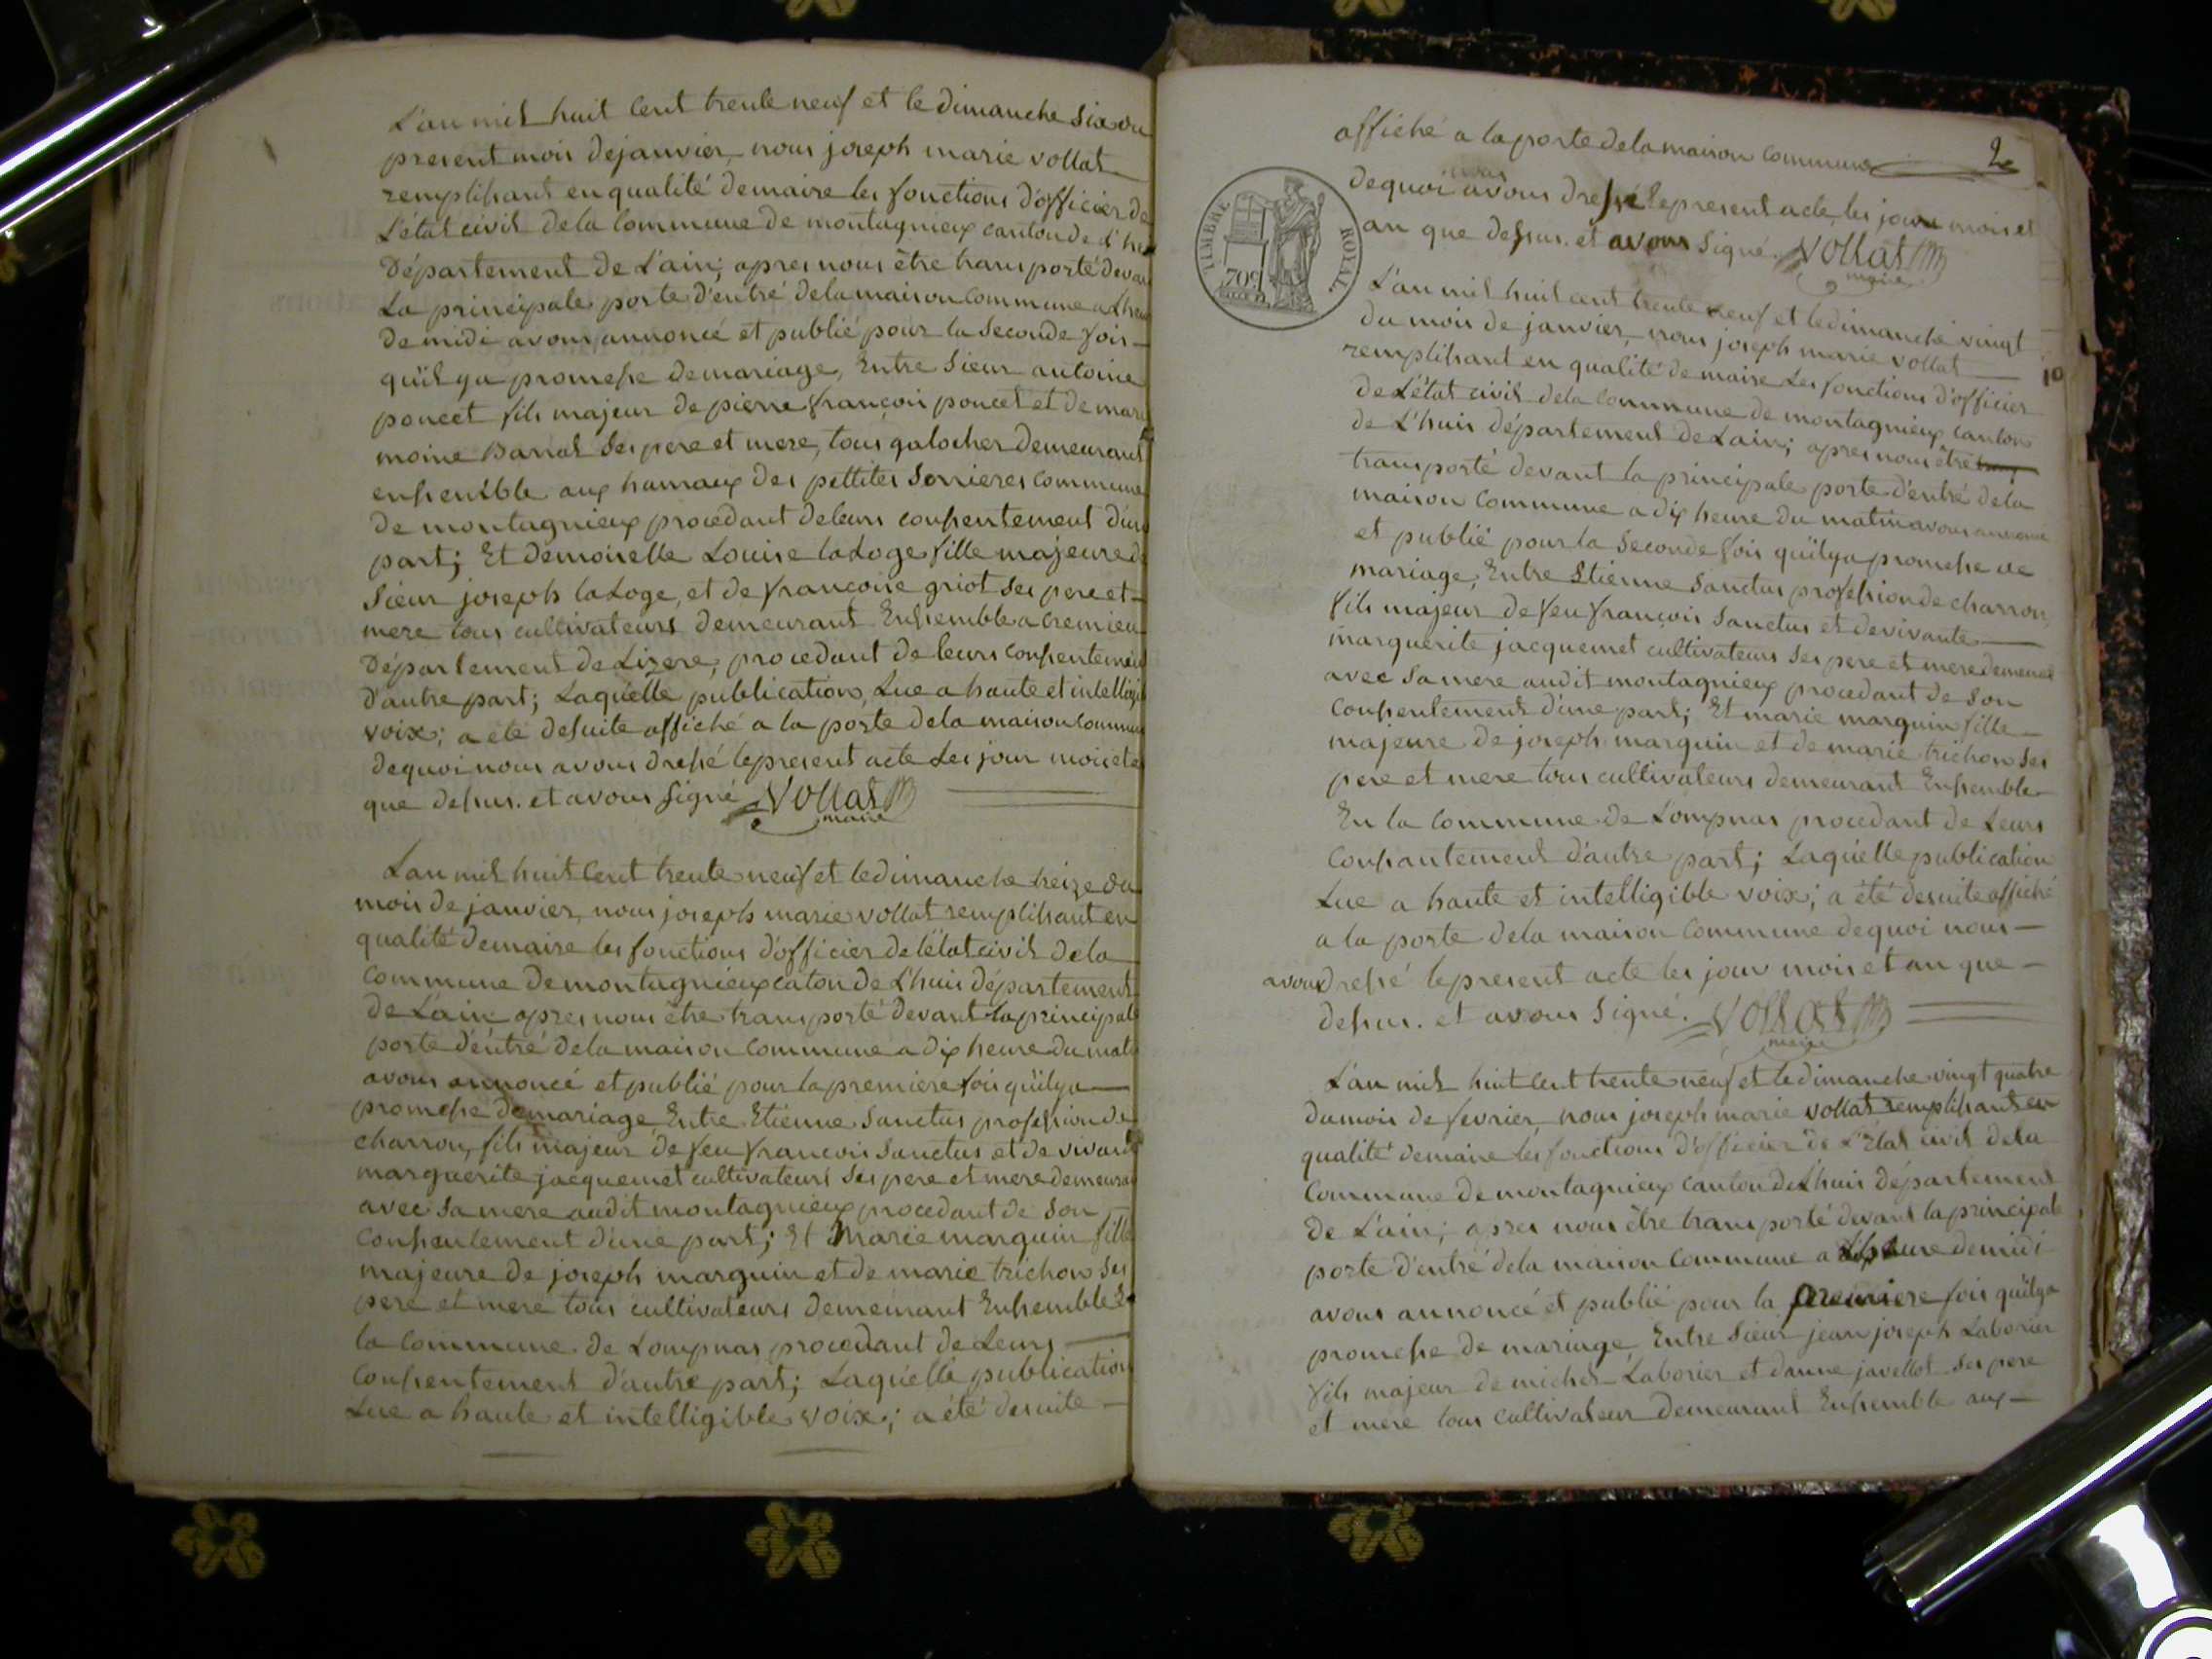 L'an mil huit Cent trente neuf et le dimanche six du
present mois de janvier, nous joseph marie vollat
remplissant en qualité de maire les fonctions d'officier de
L'état civil de la Commune de montagnieux canton de L'hui
Département de L'ain; apres nous être transporté devan
La principale porte d'entré de la maison Commune a Lheu
de midi avons annoncé et publié pour la Seconde fois
quil ya promesse de mariage, Entre Sieur antoine
poncet fils majeur de pierre françois poncet et de mari
moine Barral Ses pere et mere, tous galocher demeurant
ensemble aux hamaux des pettites Serrieres commune
de montagnieux procedant de leurs consentement d'un
part; Et demoiselle Louise laLoge fille majeure d
Sieur joseph laLoge, et de françoise griot Ses pere et
mere tous cultivateurs demeurant Ensemble a cremieu
Département de Lizere, procedant de leurs consentemen
d'autre part; Laquelle publication, Lue a haute et intelligi
voix; a été desuite affiché a la porte de la maison Commu
de quoi nous avons dressé le present acte Les jour mois et a
que dessus. et avons Signé Vollat
maire
L'an mil huit Cent trente neuf et le dimanche treize du
mois de janvier, nous joseph marie vollat remplissant en
qualité de maire les fonctions d'officier de l'état civil de la
Commune de montagnieux caton de L'huis département
de L'ain apres nous être transporté devant la principale
porte d'entré de la maison Commune a dix heure du mati
avons annoncé et publié pour la premiere fois quil ya
promesse de mariage Entre Etienne Sanctus profession de
charron, fils majeur de feu francois Sanctus et de vivante
marguerite jacquemet cultivateurs Ses pere et mere demeuran
avec Sa mere audit montagnieux procedant de Son
Consentement d'une part; Et Marie marguin fille
majeure de joseph marguin et de marie trichon Ses
pere et mere tous cultivateurs demeurant Ensemble En
la Commune de Lompnas procedant de Leurs
Consentement d'autre part; Laquelle publication
Lue a haute et intelligible voix; a été desuite
2e
affiché a la porte de la maison Commune
nous
de quoi avons dressé le present acte, les jour mois et
an que dessus. et avons Signé. Vollat
maire
TIMBRE ROYAL
70c
L'an mil huit cent trente neuf et le dimanche vingt
du mois de janvier, nous joseph marie vollat
10
remplissant en qualité de maire Les fonctions d'officier
de L'état civil de la Commune de montagnieux canton
de L'huis département de Lain; apres nous être
transporté devant la principale porte d'entré de la
maison Commune a dix heure du matin avons annoncé
et publié pour la Seconde fois quil ya promesse de
mariage, Entre Etienne Sanctus profession de charron,
fils majeur de feu françois Sanctus et de vivante
marguerite jacquemet cultivateurs Ses pere et mere demeurant
avec Sa mere audit montagnieux procedant de Son
Consentement d'une part; Et marie marguin fille
majeure de joseph marguin et de marie trichon Ses
pere et mere tous cultivateurs demeurant Ensemble
En la Commune de Lompnas procedant de Leurs
Consantement d'autre part; Laquelle publication
Lue a haute et intelligible voix; a été desuite affiché
a la porte de la maison Commune de quoi nous
avons dressé le present acte les jour mois et an que
dessus. et avons Signé. Vollat
maire
L'an mil huit Cent trente neuf et le dimanche vingt quatre
du mois de fevrier, nous joseph marie vollat remplissant en
qualité de maire les fonctions d'officier de L'Etat civil de la
Commune de montagnieux canton de Lhuis département
de L'ain; apres nous être transporté devant la principale
porte d'entré de la maison Commune a heure de midi
avons annoncé et publié pour la premiere fois quil ya
promesse de mariage Entre Sieur jean joseph Laborier
fils majeur de michel Laborier et d'anne javellot Ses pere
et mere tous cultivateur demeurant Ensemble aux